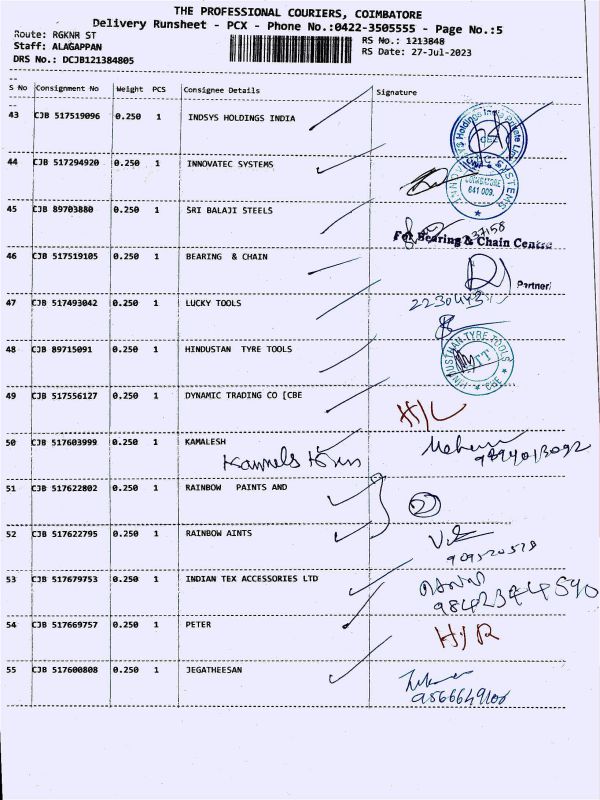 THE PROFESSIONAL COURIERS, COIMBATORE
Delivery Runsheet - PCX - Phone No.:0422-3505555 - Page No.:5
Route: RGKNR ST
RS No.: 1213848
Staff: ALAGAPPAN
RS Date: 27-Jul-2023
DRS No.: DCJB121384805
S No Consignment No Weight PCS Consignee Details Signature
43 CJB 517519096 0.250 1 INDSYS HOLDINGS INDIA
44 CJB 517294920 0.250 1 INNOVATEC SYSTEMS
COIMBATORE
641 009.
45 CJB 89703880 0.250 1 SRI BALAJI STEELS
37158
For Bearing & Chain Centre
46 CJB 517519105 0.250 1 BEARING & CHAIN
Partner
47 CJB 517493042 0.250 1 LUCKY TOOLS
48 CJB 89715091 0.250 1 HINDUSTAN TYRE TOOLS
HINDUSTHAN TYRE TOOLS
HTT
CBE
49 CJB 517556127 0.250 1 DYNAMIC TRADING CO [CBE
H/L
50 CJB 517603999 0.250 1 KAMALESH
51 CJB 517622802 0.250 1 RAINBOW PAINTS AND
52 CJB 517622795 0.250 1 RAINBOW AINTS
53 CJB 517679753 0.250 1 INDIAN TEX ACCESSORIES LTD
9842344590
54 CJB 517669757 0.250 1 PETER
H/R
55 CJB 517600808 0.250 1 JEGATHEESAN